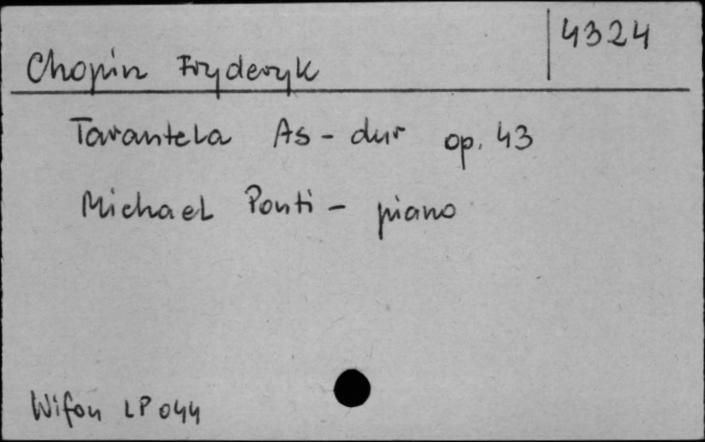 4324
Chopin Fryderyk
Tarantela As-dur op. 43
Michael Ponti - piano
Wifon LP 044